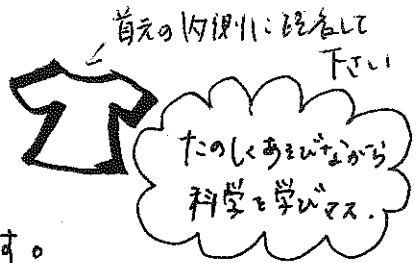 首元の内側に記名して
下さい
たのしくあそびながら
科学を学びマス.
す。